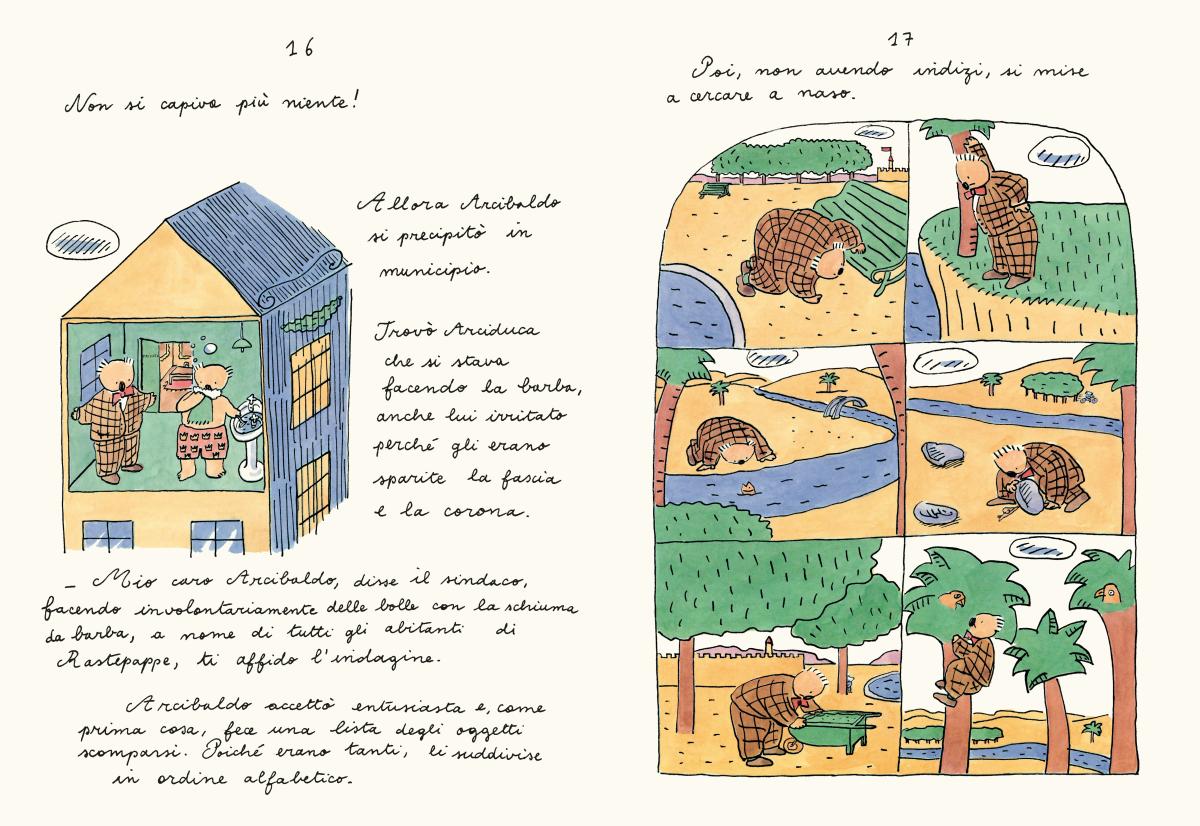 16
Non si capiva più niente!
Allora Arcibaldo
si precipitò in
municipio.
Trovò Arciduca
che si stava
facendo la barba,
anche lui irritato
perché gli erano
sparite la fascia
e la corona.
_ Mio caro Arcibaldo, disse il sindaco,
facendo involontariamente delle bolle con la schiuma
da barba, a nome di tutti gli abitanti di
Rastepappe, ti affido l'indagine.
Arcibaldo accettò entusiasta e, come
prima cosa, fece una lista degli oggetti
scomparsi. Poiché erano tanti, li suddivise
in ordine alfabetico.
17
Poi, non avendo indizi, si mise
a cercare a naso.